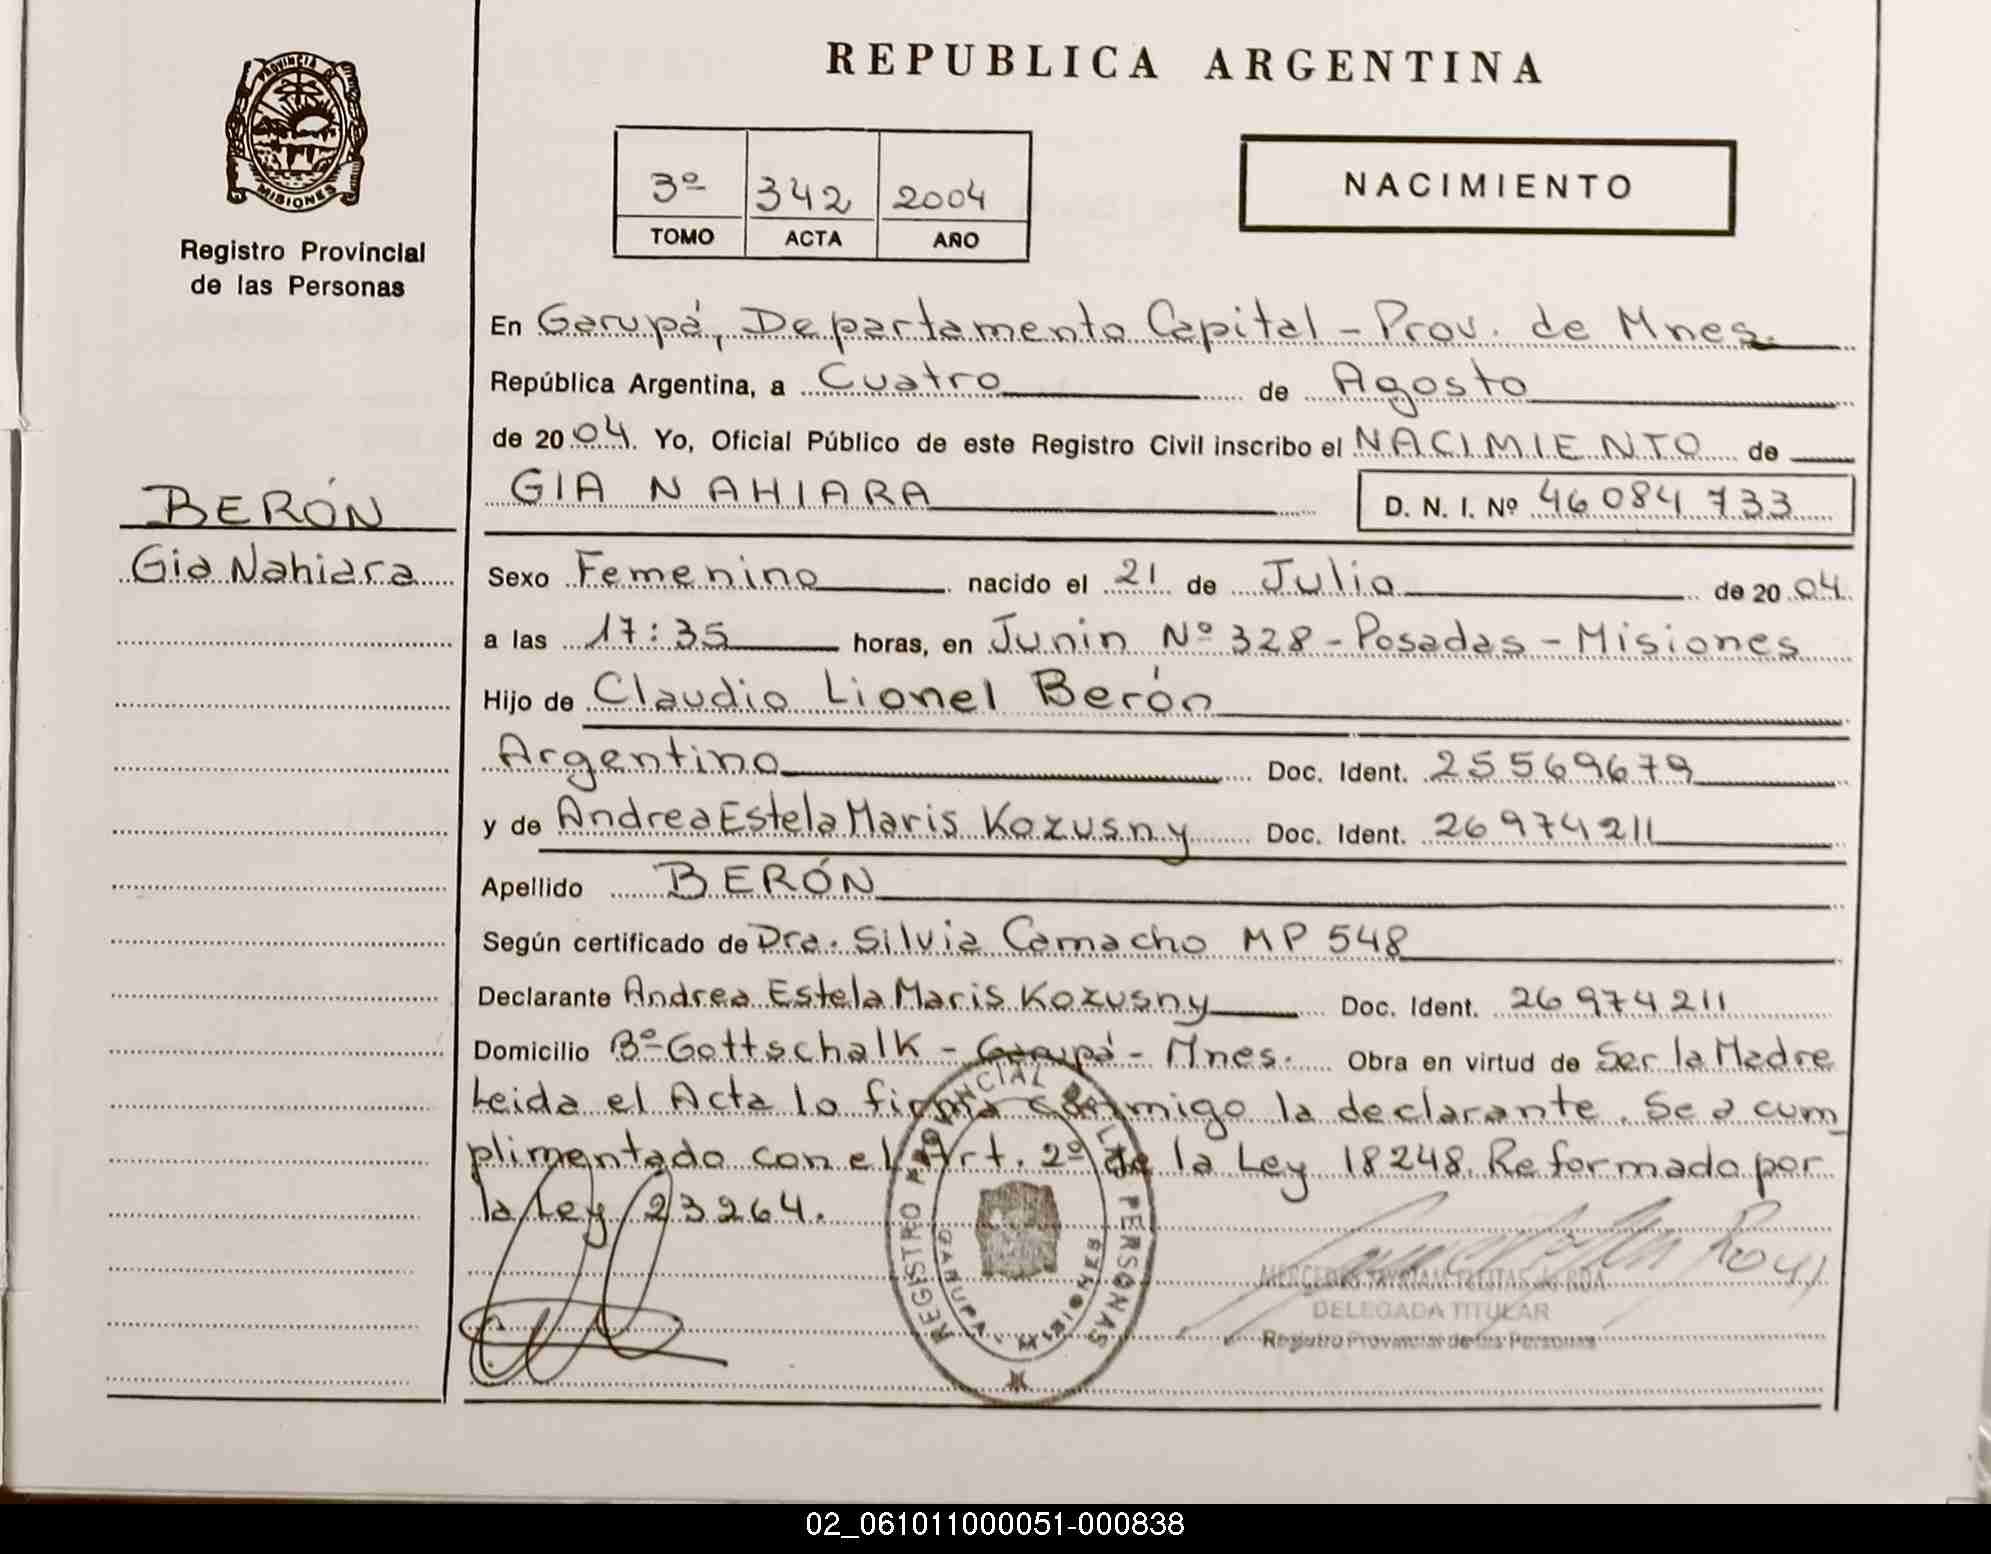 REPUBLICA ARGENTINA
PROVINCIA DE
MISIONES
Registro Provincial
de las Personas
3º 342 2004
TOMO ACTA AÑO
NACIMIENTO
En Garupá, Departamento Capital - Prov. de Mnes.
República Argentina, a Cuatro de Agosto
de 2004. Yo, Oficial Público de este Registro Civil inscribo el NACIMIENTO de
BERÓN
Gia Nahiara
GIA NAHIARA D. N. I. Nº 46 084 733
Sexo Femenino nacido el 21 de Julio de 2004
a las 17:35 horas, en Junin Nº 328 - Posadas - Misiones
Hijo de Claudio Lionel Berón
Argentino Doc. Ident. 25569679
y de Andrea Estela Maris Kozusny Doc. Ident. 26974211
Apellido BERÓN
Según certificado de Dra. Silvia Camacho MP 548
Declarante Andrea Estela Maris Kozusny Doc. Ident. 26 974 211
Domicilio Bº Gottschalk - Garupá - Mnes. Obra en virtud de Ser la Madre
Leida el Acta lo firma conmigo la declarante. Se a cum
plimentado con el Art. 2º de la Ley 18248. Reformado por
la Ley 23264.
REGISTRO PROVINCIAL DE LAS PERSONAS
GARUPA - MISIONES
DELEGADA TITULAR
Registro Provincial de las Personas
02_061011000051-000838